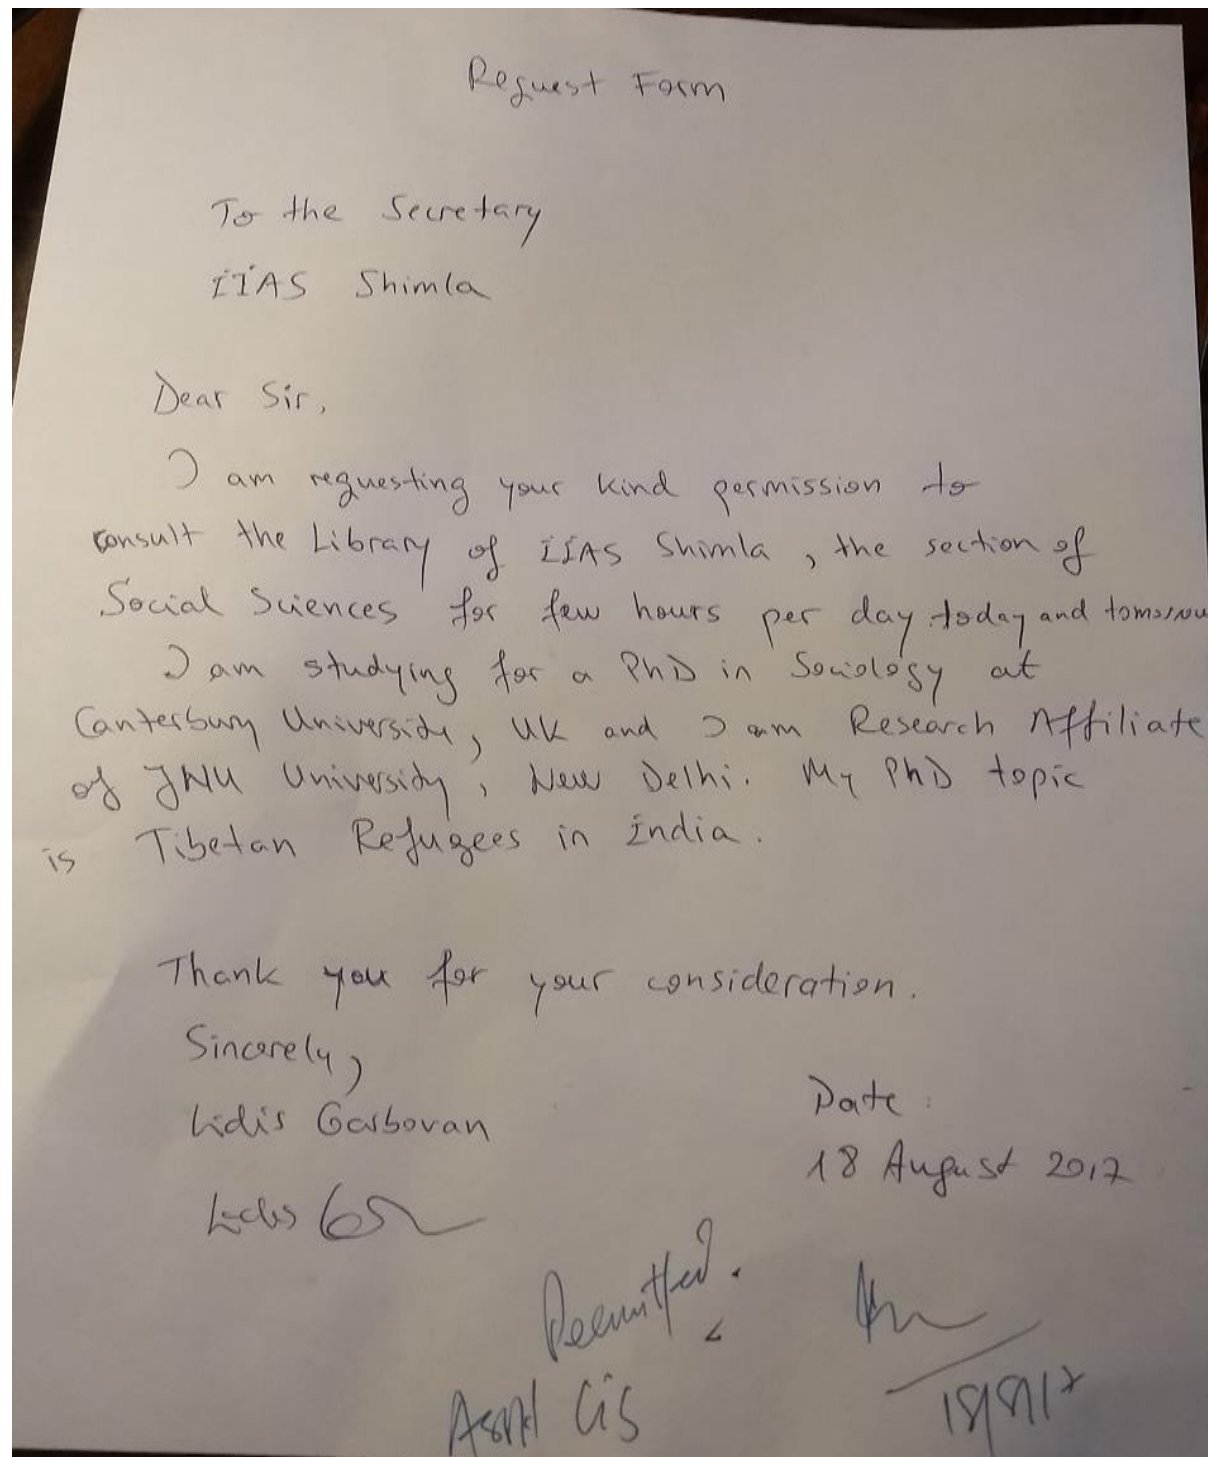 Request Form
To the Secretary
IIAS Shimla
Dear Sir,
I am requesting your kind permission to
consult the Library of IIAS Shimla, the section of
Social Sciences for few hours per day today and tomorrow
I am studying for a PhD in Sociology at
Canterbury University, UK and I am Research Affiliate
of JNU University, New Delhi. My PhD topic
is Tibetan Refugees in India.
Thank you for your consideration.
Sincerely,
Garbovan
Date:
18 August 2017
Permitted.
18/8/17